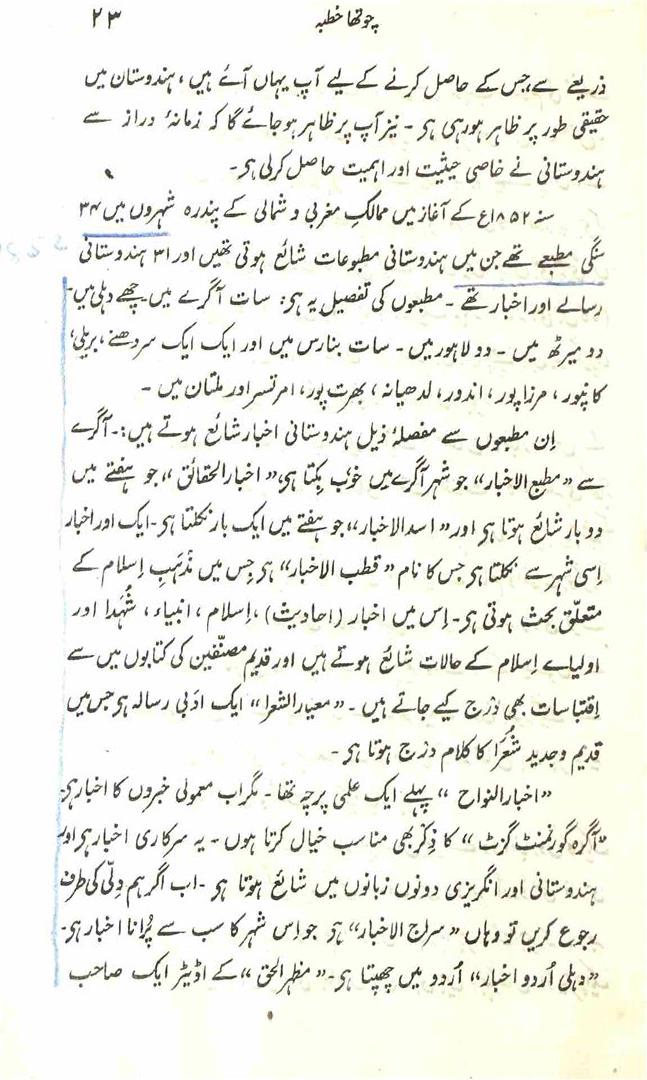 چوتھا خطبہ ۲۳
ذریعے سے، جس کے حاصل کرنے کے لیے آپ یہاں آئے ہیں، ہندوستان میں
حقیقی طور پر ظاہر ہو رہی ہی ۔ نیز آپ پر ظاہر ہو جائے گا کہ زمانۂ دراز سے
ہندوستانی نے خاصی حیثیت اور اہمیت حاصل کرلی ہی۔
سنہ ۱۸۵۲ع کے آغاز میں ممالکِ مغربی و شمالی کے پندرہ شہروں میں ۳۴
سنگی مطبعے تھے جن میں ہندوستانی مطبوعات شائع ہوتی تھیں اور ۳۱ ہندوستانی
رسالے اور اخبار تھے ۔ مطبعوں کی تفصیل یہ ہی: سات آگرے میں۔ چھے دہلی میں۔
دو میرٹھ میں ۔ دو لاہور میں ۔ سات بنارس میں اور ایک ایک سردھنے، بریلی،
کانپور، مرزا پور، اندور، لدھیانہ، بھرت پور، امرتسر اور ملتان میں ۔
اِن مطبعوں سے مفصلۂ ذیل ہندوستانی اخبار شائع ہوتے ہیں:۔ آگرے
سے ”مطبع الاخبار“ جو شہر آگرے میں خوب بِکتا ہی، ”اخبار الحقائق“، جو ہفتے میں
دو بار شائع ہوتا ہی اور ”اسد الاخبار“، جو ہفتے میں ایک بار نکلتا ہی۔ ایک اور اخبار
اِسی شہر سے نکلتا ہی جس کا نام ”قطب الاخبار“ ہی جِس میں مذہبِ اِسلام کے
متعلّق بحث ہوتی ہی۔ اِس میں اخبار (احادیث)، اِسلام، انبیاء، شُہدا اور
اولیاے اِسلام کے حالات شائع ہوتے ہیں اور قدیم مصنّفین کی کتابوں میں سے
اِقتباسات بھی درج کیے جاتے ہیں ۔ ”معیار الشعرا“ ایک ادبی رسالہ ہی جس میں
قدیم وجدید شُعَرا کا کلام درج ہوتا ہی ۔
”اخبار النواح“ پہلے ایک علمی پرچہ تھا ۔ مگر اب معمولی خبروں کا اخبار ہی۔
”آگرہ گورنمنٹ گزٹ“ کا ذِکر بھی مناسب خیال کرتا ہوں ۔ یہ سرکاری اخبار ہی اور
ہندوستانی اور انگریزی دونوں زبانوں میں شائع ہوتا ہی ۔ اب اگر ہم دِلّی کی طرف
رجوع کریں تو وہاں ”سراج الاخبار“ ہی جو اِس شہر کا سب سے پُرانا اخبار ہی۔
”دہلی اُردو اخبار“ اُردو میں چھپتا ہی۔ ”مظہر الحق“ کے اڈیٹر ایک صاحب